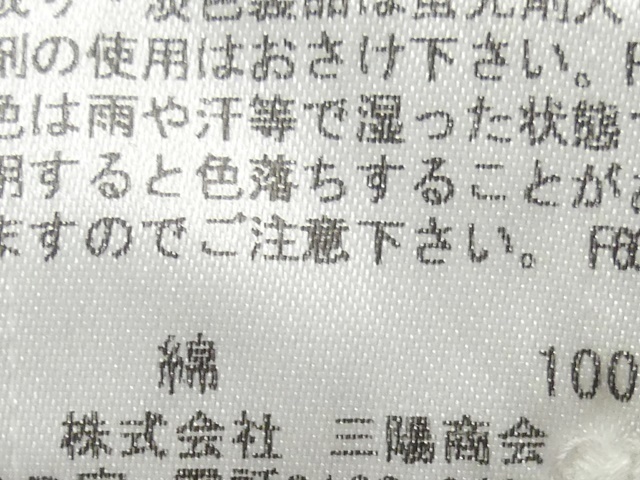 淡色製品は蛍光剤入
剤の使用はおさけ下さい。F
色は雨や汗等で湿った状態
用すると色落ちすることが
ますのでご注意下さい。 F60
綿 100
株式会社 三陽商会